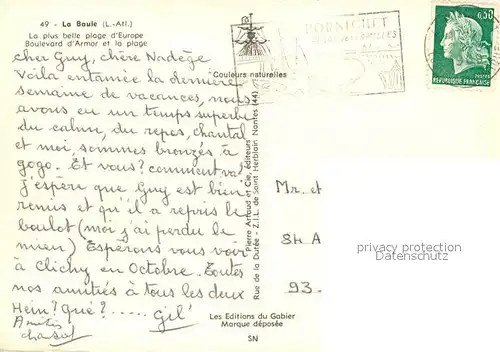 49 - La Baule (L.-Atl.)
La plus belle plage d'Europe
Boulevard d'Armor et la plage
cher Guy, chère Nadège
Voila entamée la dernière
semaine de vacances, nous
avons eu un temps superbe
du calme, du repos, chantal
et moi, sommes bronzés à
gogo. Et vous? comment va?
j'espère que Guy est bien
remis et qu'il a repris le
boulot (moi j'ai perdu le
mien) Espérons vous voir
à Clichy en Octobre. Toutes
nos amitiés à tous les deux
Hein? qué? .....
gil'
Amitiés
chantal
Couleurs naturelles
Pierre Artaud et Cie, éditeurs
Rue de la Durée - Z.I.L. de Saint Herblain Nantes (44)
Les Editions du Gabier
Marque déposée
SN
PORNICHET
0,30
POSTES
REPUBLIQUE FRANCAISE
Mr. et
84 A
93.
privacy protection
Datenschutz